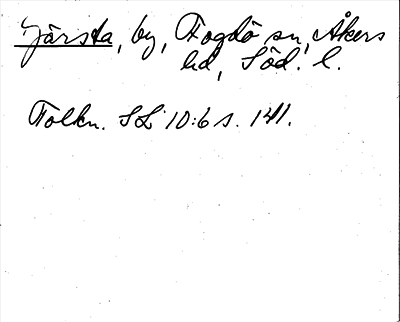 Järsta, by, Fogdö sn, Åkers
hd, Söd. l.
Tolkn. SL 10:6 s. 141.